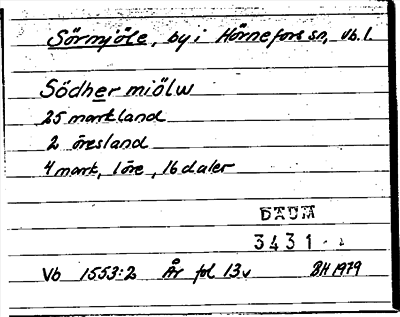 Sörmjöle, by i Hörnefors sn, Vb. l.
Södher miölw
25 markland
2 öresland
4 mark, 1 öre, 16 daler
DAUM
3431
Vb 1553:2 År fol 13v BH 1979